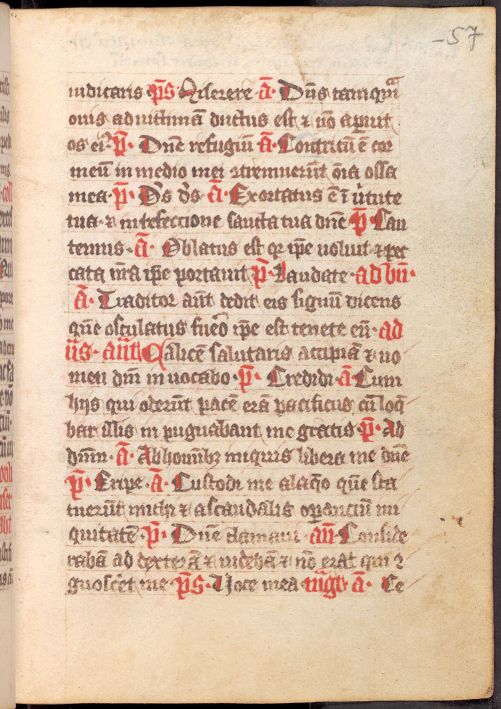 -57
iudicaris p̄s Miserere ā· Dn̄s tamquā
ouis ad uittimā ductus est ⁊ nō aperuit
os eiꝰ p̄· Dn̄e refugiū ā· Contritū ē cor
meū in medio mei ⁊tremuerūt om̄ia ossa
mea p̄· Ds̄ ds̄ ā· Exortatus ē ī uirtute
tua· ⁊ in refectione sancta tua dn̄e p̄· Can
temus· ā· Oblatus est qr ip̄e uoluit ⁊ pec
cata nr̄a ip̄e portauit p̄· Laudate· ad bn̄·
ā· Traditor aūt dedit eis signū dicens
quē osculatus fuero ip̄e est tenete eū· ad
us̄· añ Calicē salutaris accipiā ⁊ no
men dn̄i inuocabo· p̄· Credidi· ā· Cum
hijs qui oderūt pacē erā pacificus cū loq̄
bar illis inpugnābant me gratis p̄· Ad
dn̄m· ā· Ab homībꝫ iniquis libera me dn̄e
p̄· Eripe· ā· Custodi me a laq̄o quē sta
tuerūt michi ⁊ a scandalis operanciū ini
quitatē p̄· Dn̄e clamaui· añ· Conside
rabā ad dexterā ⁊ uidebā ⁊ nō erat qui ꝯ
gnosceret me p̄s· Voce mea mg̅t ā· Ce